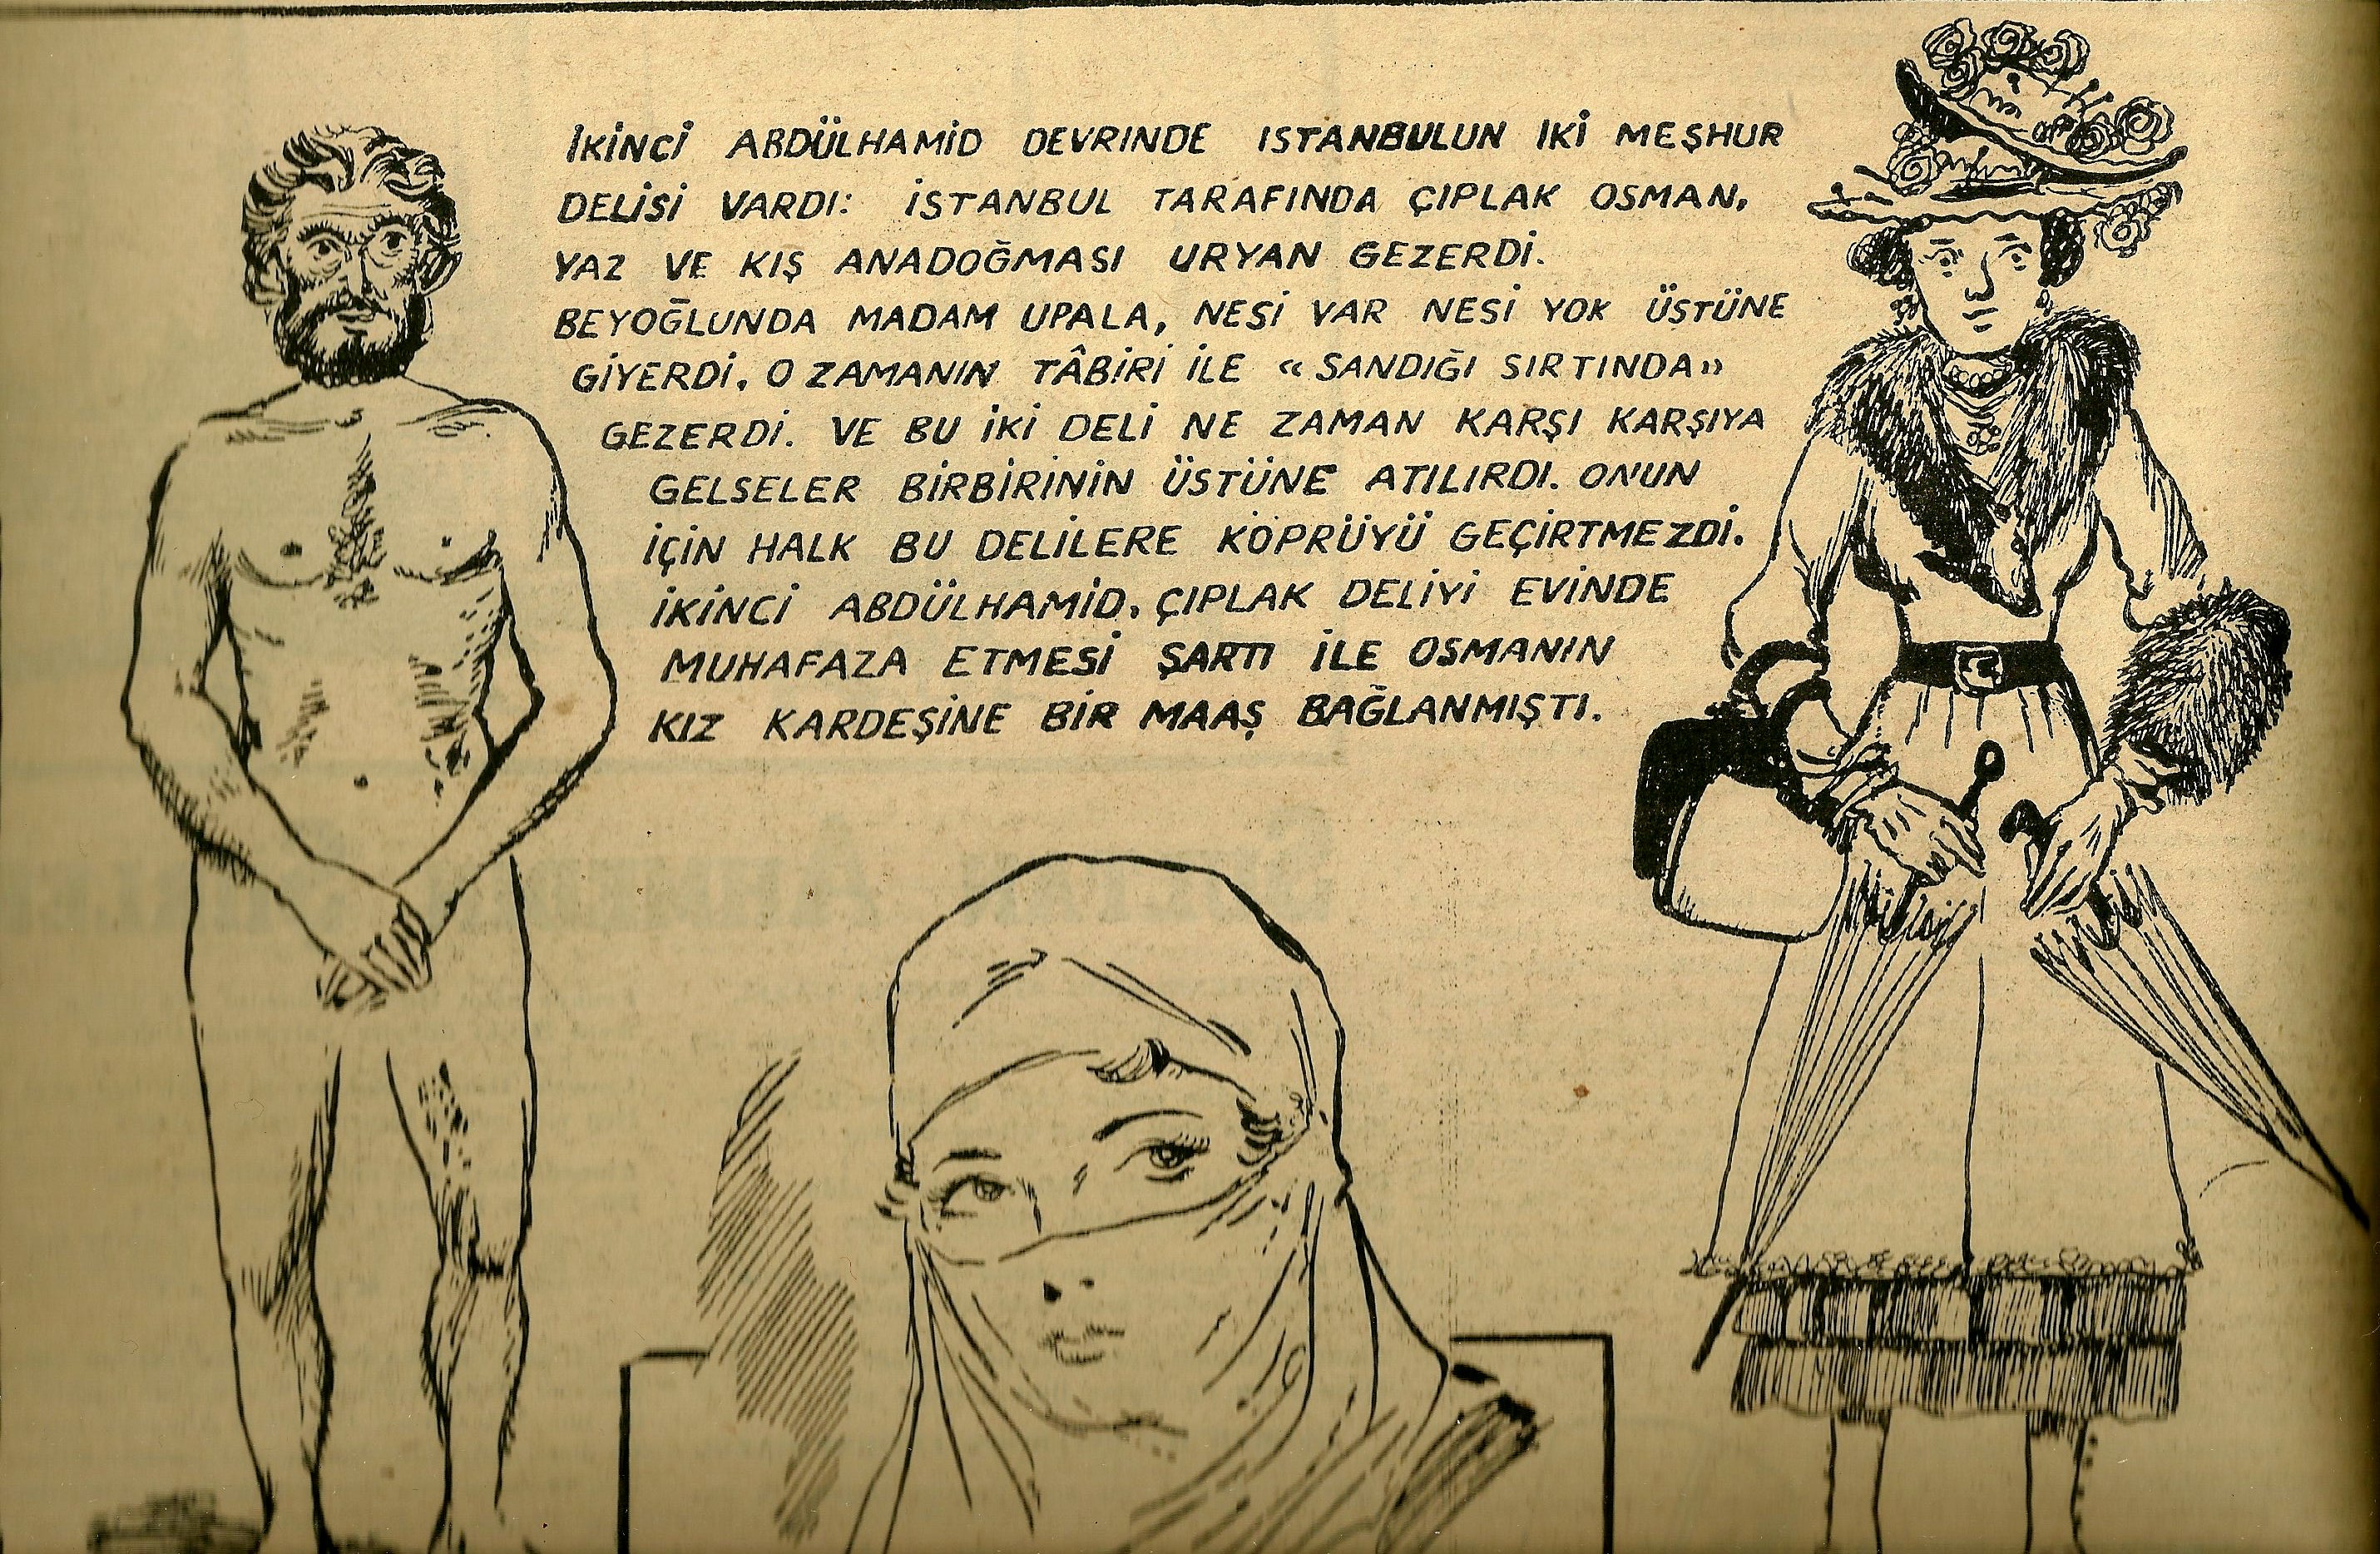 İKİNCİ ABDÜLHAMİD DEVRINDE ISTANBULUN IKİ MEŞHUR
DELİSİ VARDI: İSTANBUL TARAFINDA ÇIPLAK OSMAN,
YAZ VE KIŞ ANADOĞMASI URYAN GEZERDİ.
BEYOĞLUNDA MADAM UPALA, NESİ VAR NESİ YOK ÜSTÜNE
GİYERDİ, O ZAMANIN TÂBİRİ İLE «SANDIĞI SIRTINDA»
GEZERDİ. VE BU İKİ DELİ NE ZAMAN KARŞI KARŞIYA
GELSELER BİRBİRİNİN ÜSTÜNE ATILIRDI. ONUN
İÇİN HALK BU DELİLERE KÖPRÜYÜ GEÇİRTMEZDİ.
İKİNCİ ABDÜLHAMİD, ÇIPLAK DELİYİ EVİNDE
MUHAFAZA ETMESİ ŞARTI İLE OSMANIN
KIZ KARDEŞİNE BİR MAAŞ BAĞLANMIŞTI.